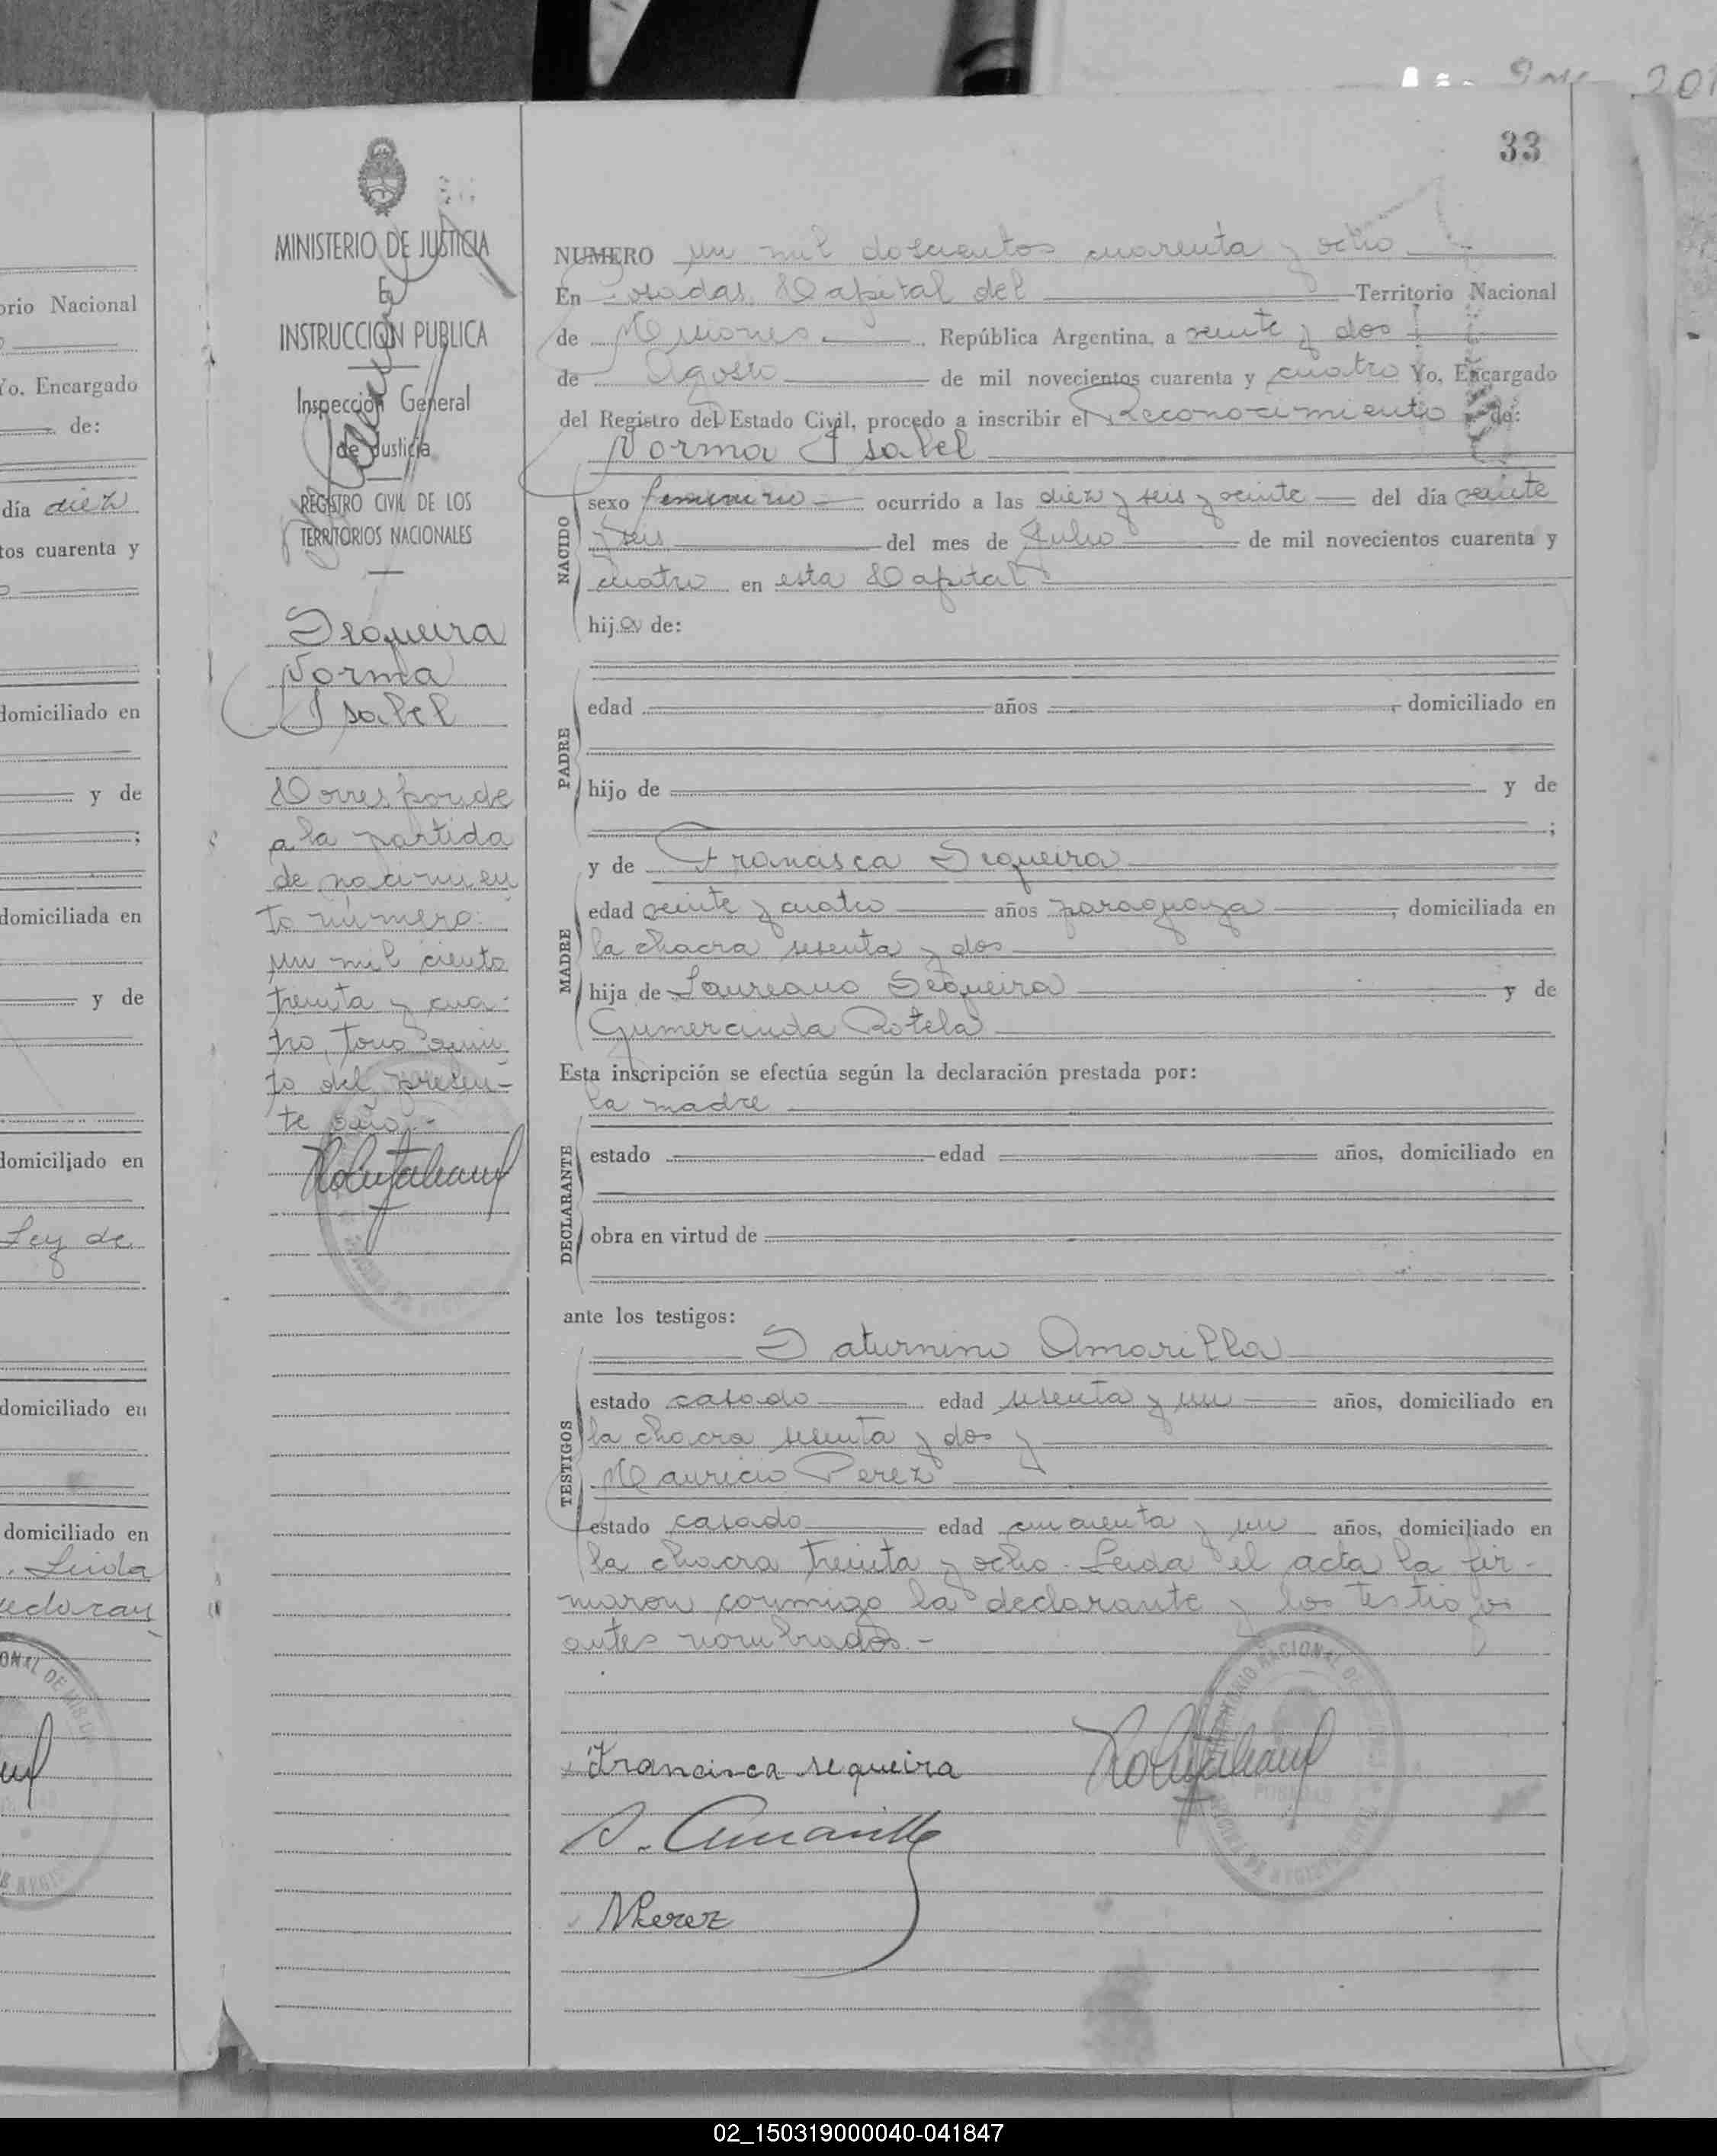 33
orio Nacional
Yo, Encargado
de:
día diez
tos cuarenta y
domiciliado en
y de
;
domiciliada en
y de
domiciliado en
Ley de
domiciliado en
domiciliado en
. Leida
MINISTERIO DE JUSTICIA
E
INSTRUCCION PUBLICA
Inspección General
de Justicia
REGISTRO CIVIL DE LOS
TERRITORIOS NACIONALES
Sequeira
Norma
Isabel
Corresponde
a la partida
de nacimien
to número:
un mil ciento
treinta y cua-
tro, tomo quin
to del presen-
te año.-
NUMERO un mil doscientos cuarenta y ocho
En Posadas, Capital del Territorio Nacional
de Misiones, República Argentina, a veinte y dos
de Agosto de mil novecientos cuarenta y cuatro Yo, Encargado
del Registro del Estado Civil, procedo a inscribir el Reconocimiento de:
Norma Isabel
NACIDO
sexo femenino ocurrido a las diez y seis y veinte del día veinte
y seis del mes de Julio de mil novecientos cuarenta y
cuatro en esta Capital
hija de:
PADRE
edad años , domiciliado en
hijo de y de
;
y de Francisca Sequeira
MADRE
edad veinte y cuatro años paraguaya , domiciliada en
la chacra sesenta y dos
hija de Laureano Sequeira y de
Gumercinda Rotela
Esta inscripción se efectúa según la declaración prestada por:
la madre
DECLARANTE
estado edad años, domiciliado en
obra en virtud de
ante los testigos:
Saturnino Amarilla
TESTIGOS
estado casado edad sesenta y un años, domiciliado en
la chacra sesenta y dos y
Mauricio Perez
estado casado edad cincuenta y un años, domiciliado en
la chacra treinta y ocho. Leida el acta la fir-
maron conmigo la declarante y los testigos
antes nombrados.-
Francisca sequeira
S. Amarilla
MPerez
02_150319000040-041847